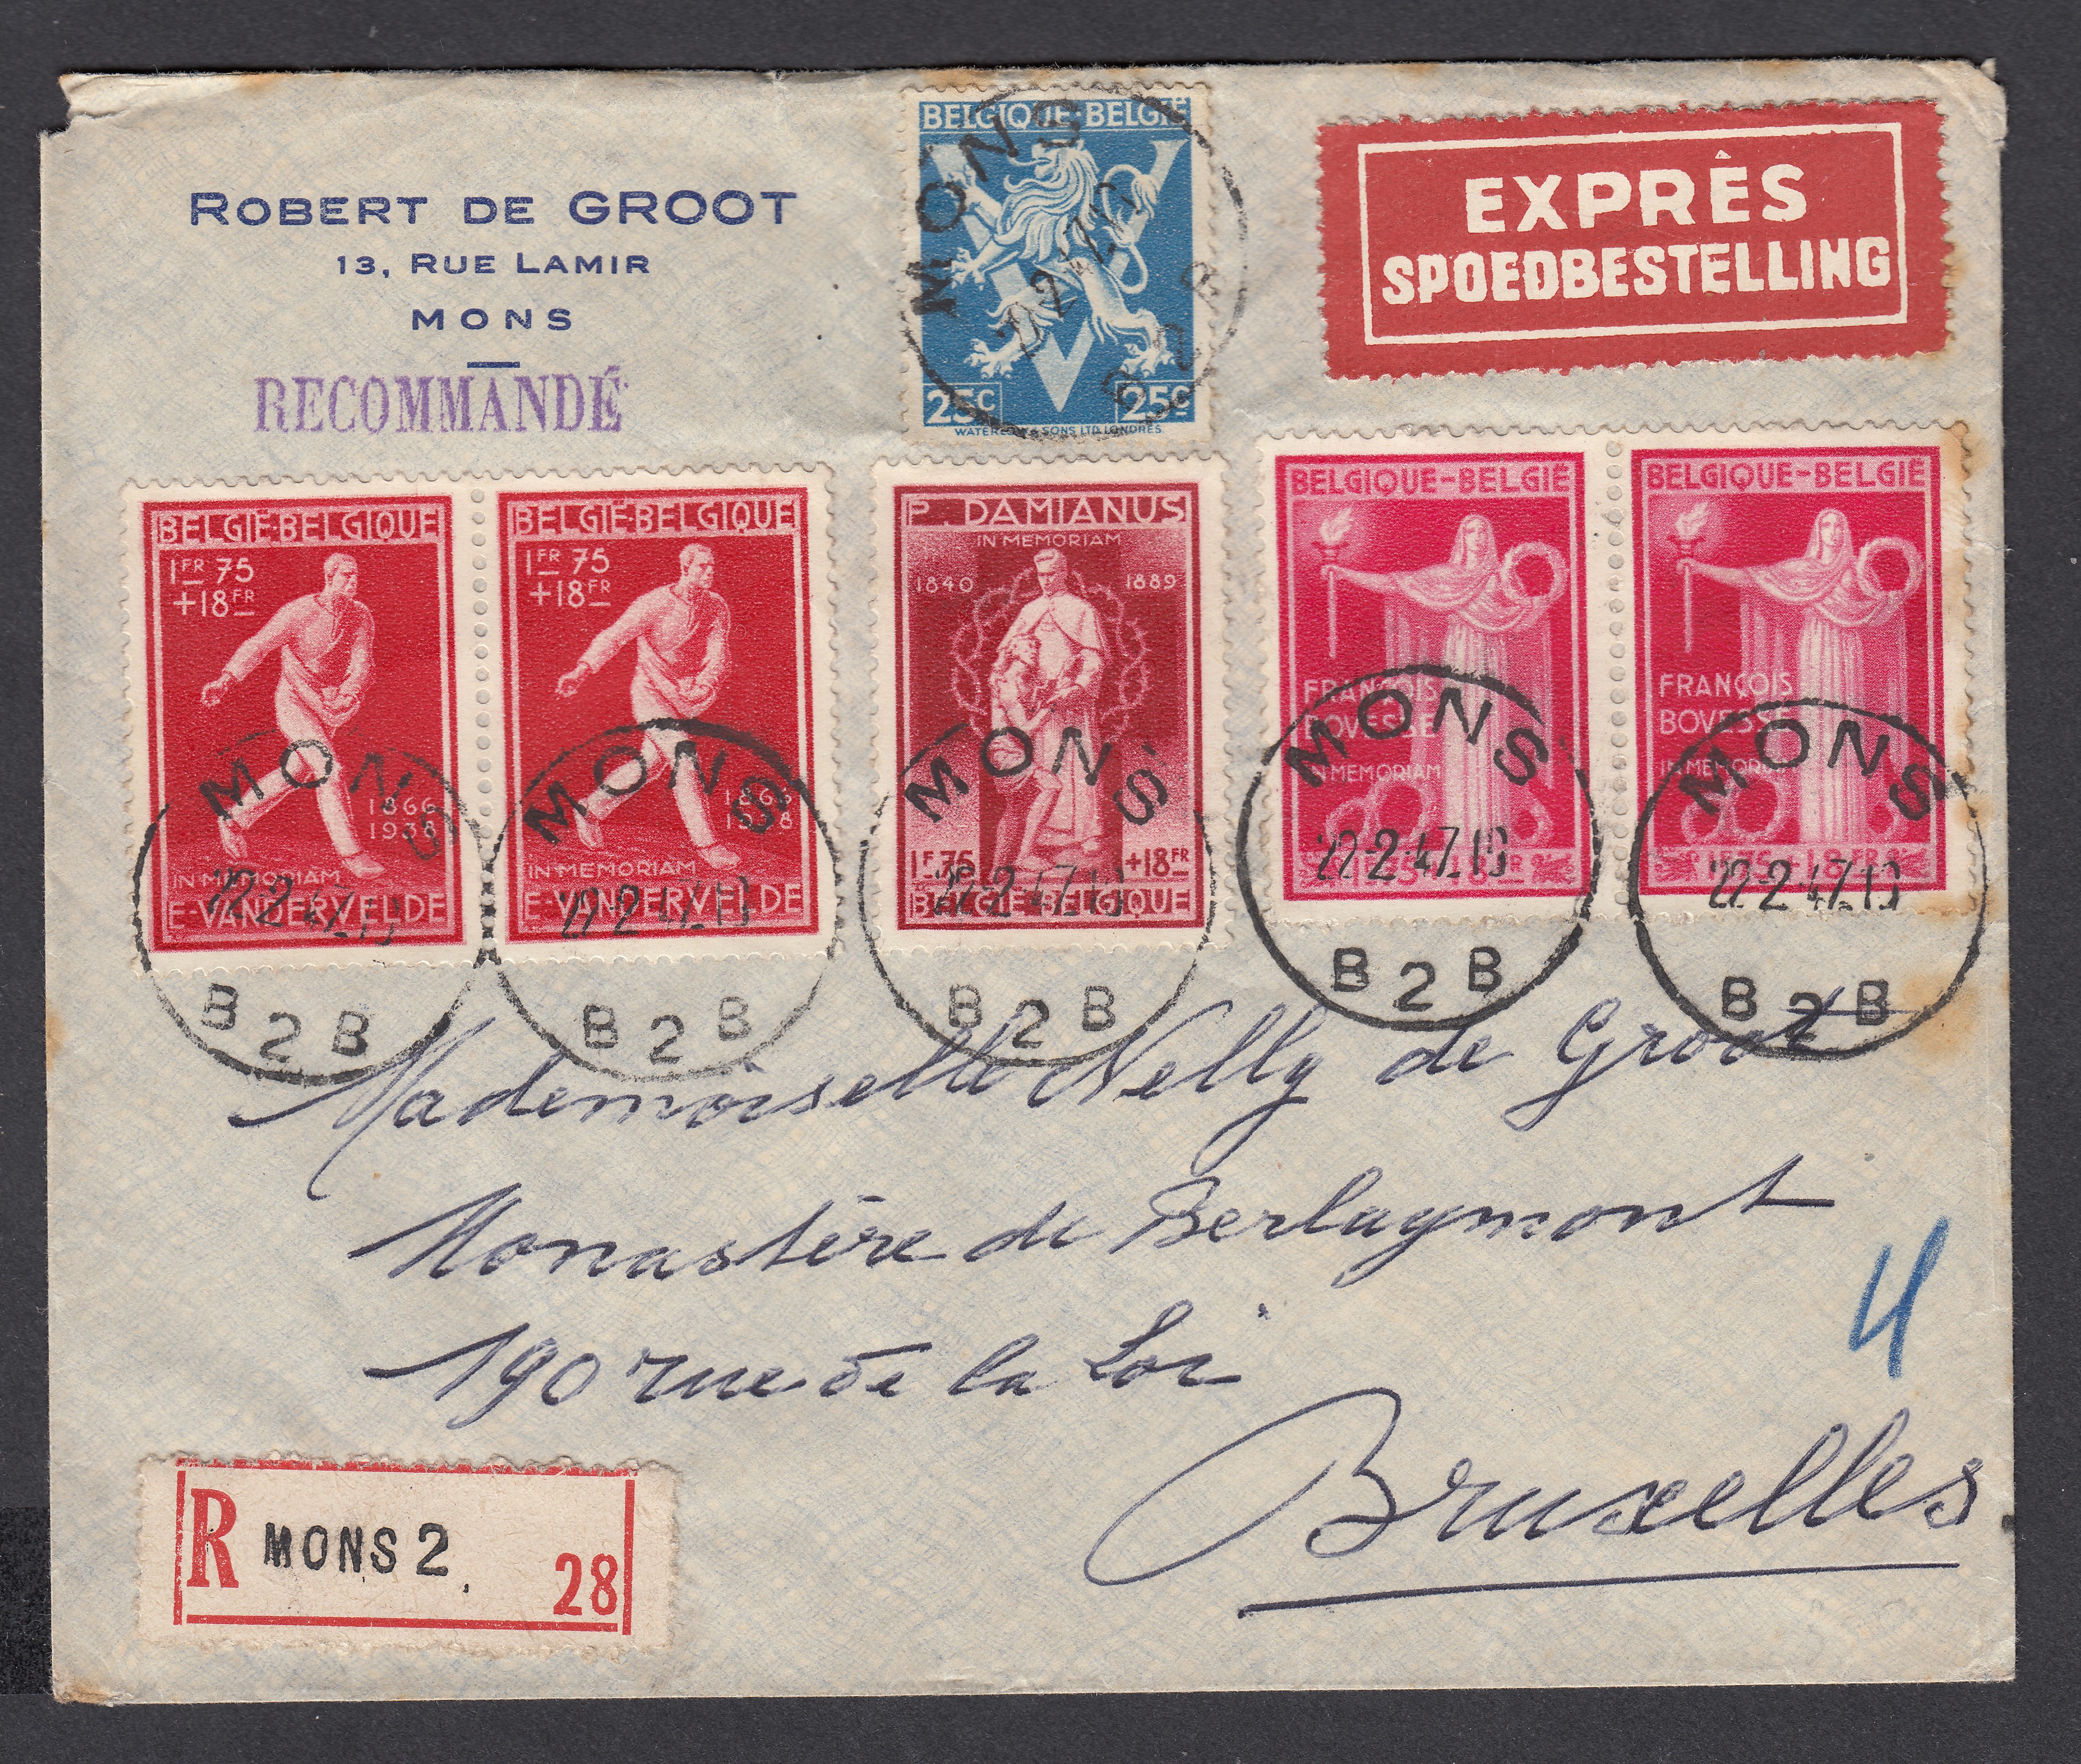 ROBERT DE GROOT
13, RUE LAMIR
MONS
RECOMMANDÉ
BELGIQUE-BELGIE
25C 25C
WATERLOW & SONS LTD. LONDRES.
MONS
EXPRÈS
SPOEDBESTELLING
BELGIË BELGIQUE
1FR 75
+18FR
1866
1938
IN MEMORIAM
E·VANDERVELDE
MONS
22-2 47.19
B 2 B
BELGIË BELGIQUE
1FR 75
+18FR
1866
1938
IN MEMORIAM
E·VANDERVELDE
MONS
22-2 47.19
B 2 B
P. DAMIANUS
IN MEMORIAM
1840 1889
1F.75 +18FR
BELGIË-BELGIQUE
MONS
22-2 47.19
B 2 B
BELGIQUE-BELGIË
FRANÇOIS
BOVESSE
IN MEMORIAM
MONS
22-2 47.19
B 2 B
BELGIQUE-BELGIË
FRANÇOIS
BOVESSE
IN MEMORIAM
MONS
22-2 47.19
B 2 B
Mademoiselle Nelly de Groot
Monastère de Berlaymont
190 rue de la Loi
Bruxelles
R MONS 2. 28